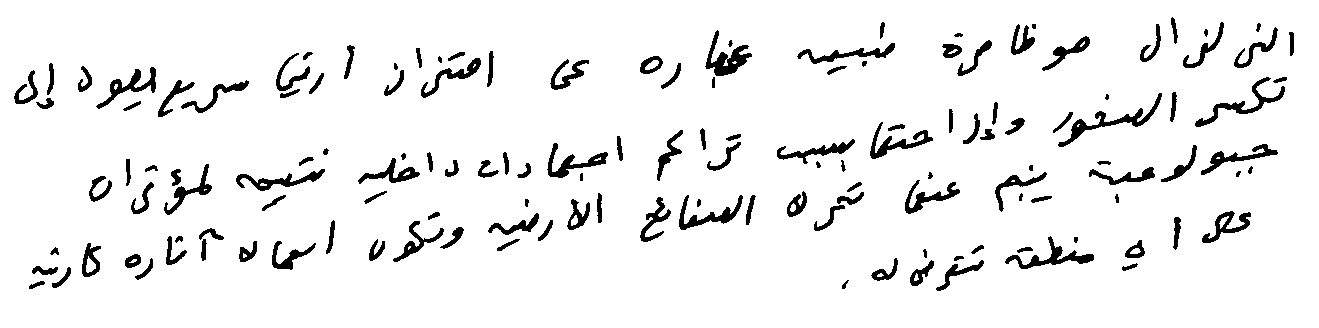 الزلزال هو ظاهرة طبيعية عباره عن اهتزاز أرضي سريع يعود إلى
تكسر الصخور وإزاحتها بسبب تراكم اجهادات داخليه نتيجه لمؤثرات
جيولوجية ينجم عنها تحرك الصفائح الأرضيه وتكون آثاره كارثيه
على أي منطقه تتعرض له .